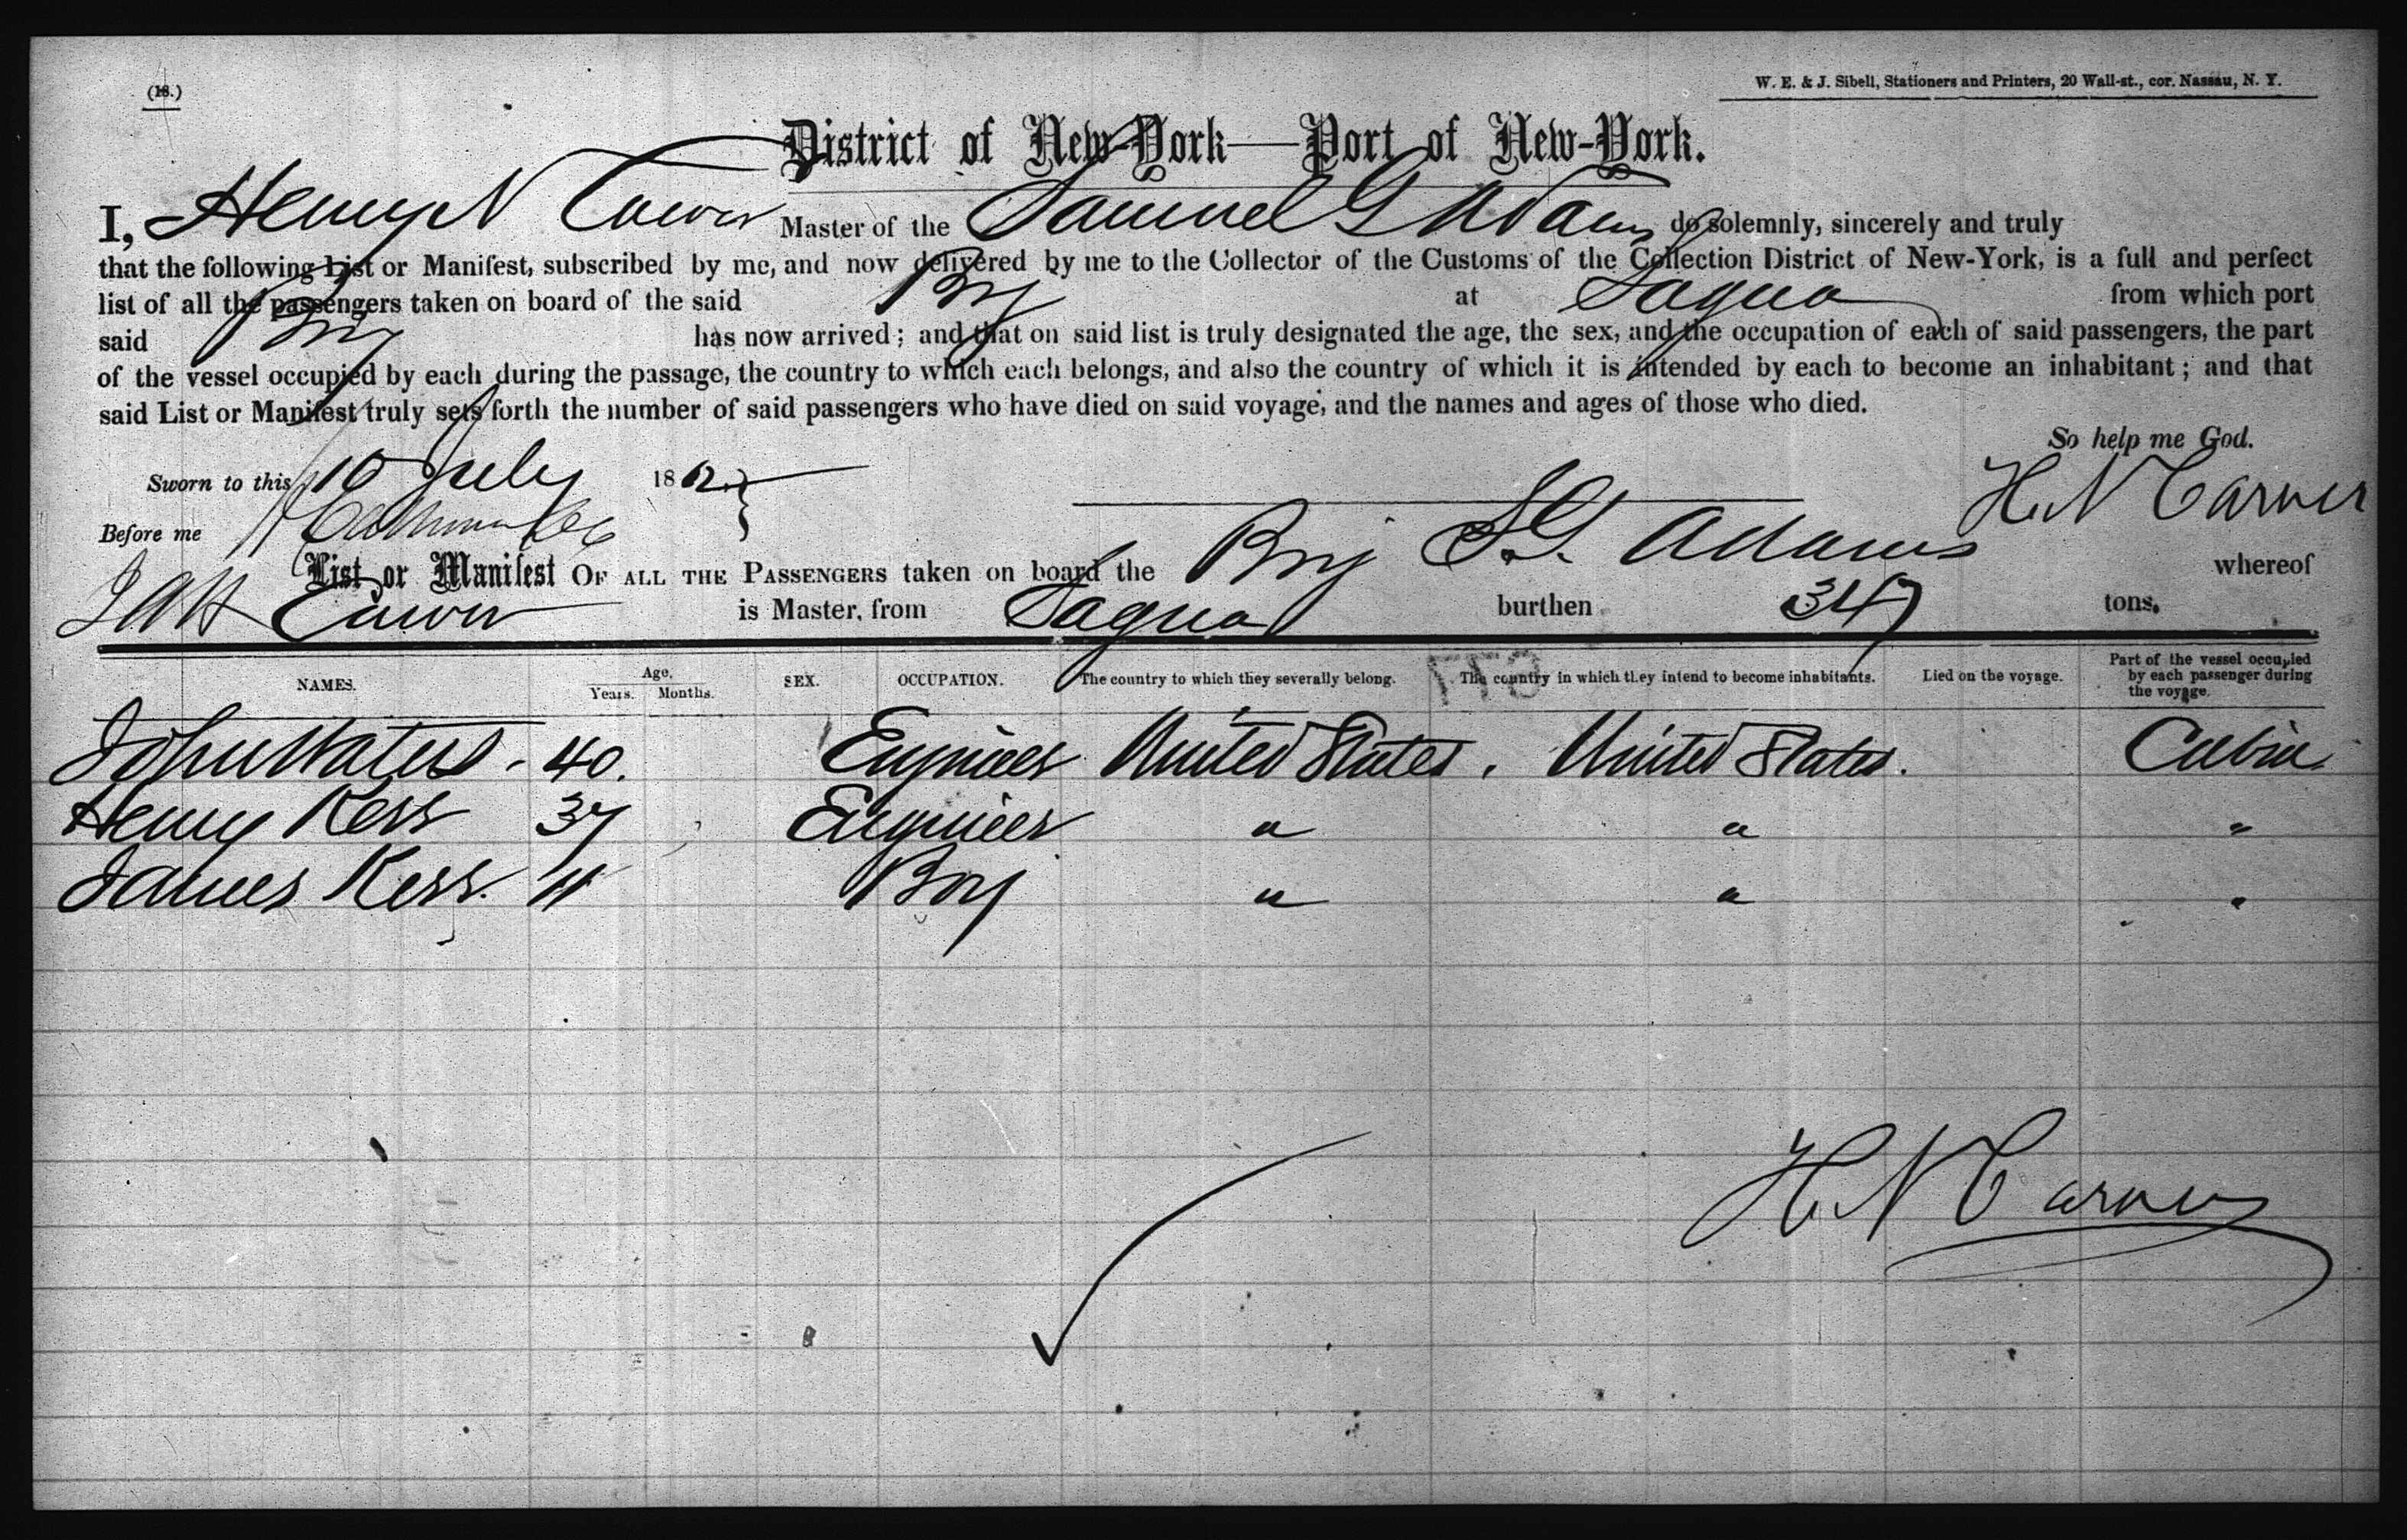 (18.)
W. E. & J. Sibell, Stationers and Printers, 20 Wall-st., cor. Nassau, N. Y.
District of New-York—Port of New-York.
I, Henry N Carver Master of the Samuel G Adams do solemnly, sincerely and truly
that the following List or Manifest, subscribed by me, and now delivered by me to the Collector of the Customs of the Collection District of New-York, is a full and perfect
list of all the passengers taken on board of the said Brig at Sagua from which port
said Brig has now arrived; and that on said list is truly designated the age, the sex, and the occupation of each of said passengers, the part
of the vessel occupied by each during the passage, the country to which each belongs, and also the country of which it is intended by each to become an inhabitant; and that
said List or Manifest truly sets forth the number of said passengers who have died on said voyage, and the names and ages of those who died.
So help me God.
Sworn to this 10 July 1862
H. N Carver
Before me
List or Manifest OF ALL THE PASSENGERS taken on board the Brig S. G. Adams whereof
Carver is Master, from Sagua burthen 347 tons.
NAMES. Age. Years. Months. SEX. OCCUPATION. The country to which they severally belong. The country in which they intend to become inhabitants. Died on the voyage. Part of the vessel occupied by each passenger during the voyage.
John Waters - 40. Engineer United States. United States. Cabin
Henry Kess 37 Engineer " " "
James Kess. 11 Boy " " "
H. N Carver